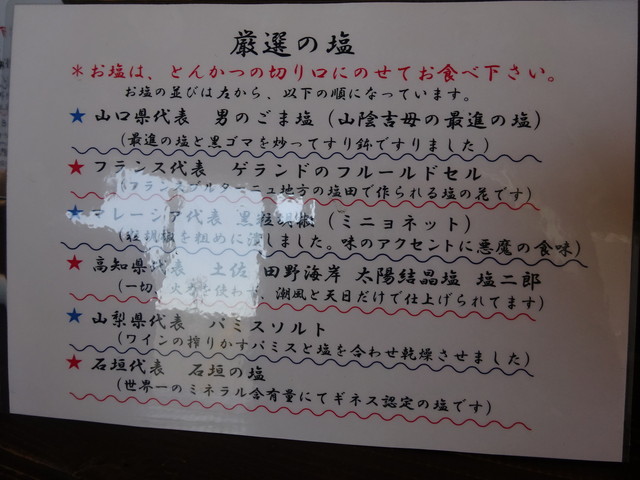 厳選の塩
＊お塩は、とんかつの切り口にのせてお食べ下さい。
お塩の並びは左から、以下の順になっています。
★山口県代表 男のごま塩（山陰吉母の最進の塩）
（最進の塩と黒ゴマを炒ってすり鉢ですりました）
★フランス代表 ゲランドのフルールドセル
（フランスブルターニュ地方の塩田で作られる塩の花です）
★マレーシア代表 黒粒胡椒（ミニョネット）
（粒胡椒を粗めに潰しました。味のアクセントに悪魔の食味）
★高知県代表 土佐 田野海岸 太陽結晶塩 塩二郎
（一切 火 使わ 潮風と天日だけで仕上げられてます）
★山梨県代表 パミスソルト
（ワインの搾りかすパミスと塩を合わせ乾燥させました）
★石垣代表 石垣の塩
（世界一のミネラル含有量にてギネス認定の塩です）